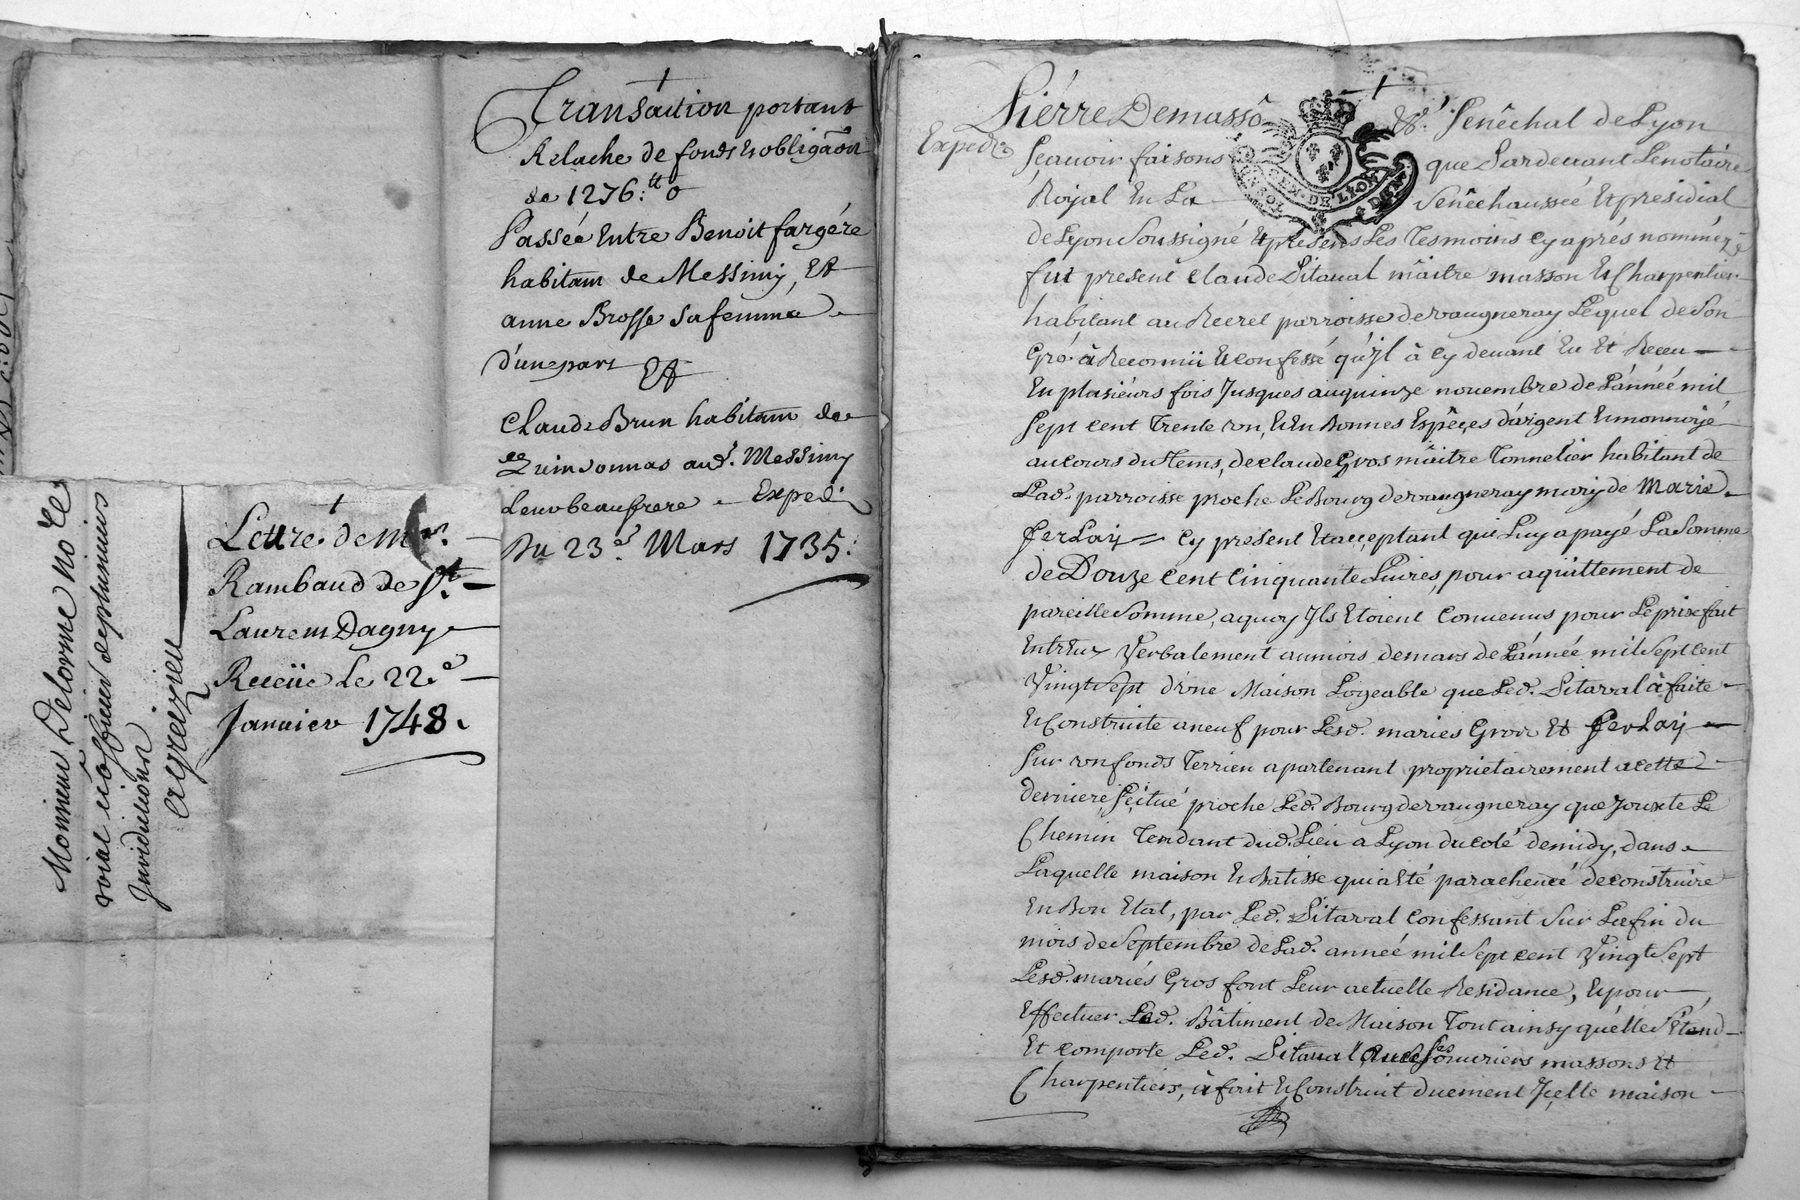 Transaction portant
Relache de fonds et obligãon
de 1276.tt 0
Passée Entre Benoit fargére
habitant de Messimy, Et
anne Brosse sa femme
d'une part Et
Claude Brun habitant de
Quinsonnas aud. Messimy
Leur beaufrere Exped.
Du 23e Mars 1735.
Lettre de Mr.
Rambaud de St.
Laurent Dagny
Receüe Le 22e
Janvier 1748.
Monsieur Delorme no.re
roial
a Greizieu
Pierre Demassô Senêchal de Lyon
Expedié Sçauoir faisons que Pardeuant Le notaire
Royal En La Senêchaussée Et presidial
de Lyon Soussigné Et presens Les Tesmoins Cy aprés nomméz
fut present Claude Pitaual mâitre masson Et Charpentier
habitant au Recret parroisse de vaugneray Lequel de Son
Gré à Reconnü Et confessé qu'Jl à Cy deuant Eu Et Receu
En plusiéurs fois Jusques au quinze nouembre de L'année mil
Sept cent Trente un, Et En Bonnes Espêçes d'argent Et monnoyé
au cours du Tems, de claude Gros mâitre Tonnelier habitant de
Lad. parroisse proche Le Bourg de vaugneray mary de Marie
Ferlay Cy present Et acceptant qui Luy a payé La Somme
de Douze Cent Cinquante Liures, pour aquittement de
pareille Somme, a quoy Jls Etoient Conuenus pour Le prixfait
Entr'Eux Verbalement au mois de mars de L'année mil Sept cent
Vingt Sept d'une Maison Logeable que Led. Pitaval à faite
Et Construite a neuf pour Lesd. mariés Gros Et Ferlay
Sur un fonds Terrien apartenant proprietairement a cette
derniere, Scitué proche Led. Bourg de vaugneray que Jouxte Le
Chemin Tendant dud. Lieu a Lyon du coté de midy, dans
Laquelle maison Et Batisse qui a Eté parachevée de construire
En Bon Etat, par Led. Pitaval Confessant Sur La fin du
mois de Septembre de Lad. année mil Sept cent Vingt Sept
Lesd. mariés Gros font Leur actuelle Residance, Et pour
Effectuer Led. Bâtiment de Maison Tout ainsy qu'elle S'étend
Et comporte Led. Pitaual, auec Ses ouuriers massons Et
Charpentiers, à fait Et Construit duement Jçelle maison